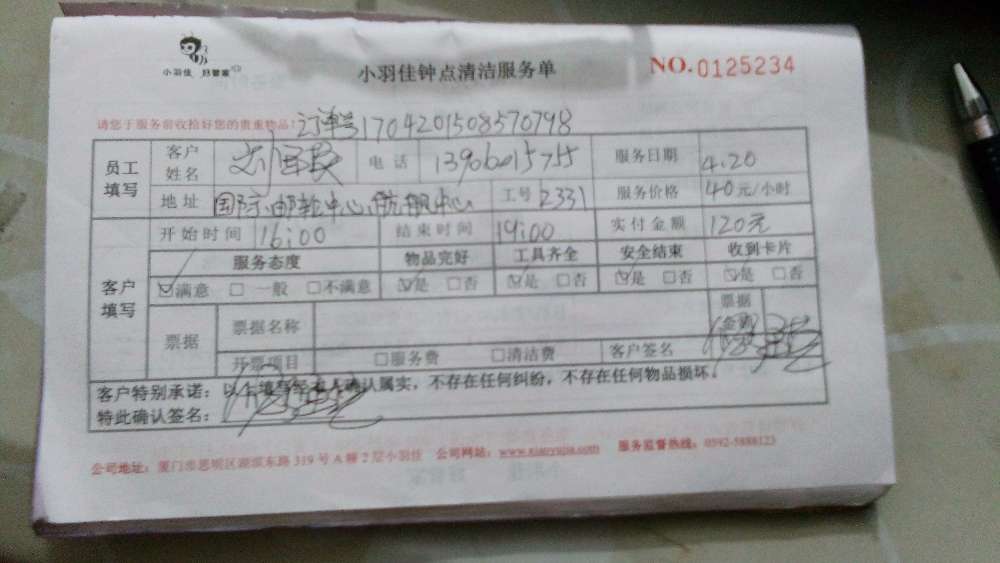 小羽佳 好管家
小羽佳钟点清洁服务单
NO.0125234
请您于服务前收拾好您的贵重物品!
订单号1704201508570798
员工填写 客户姓名 电话 13906015755 服务日期 4.20
地址 国际邮轮中心.航舰中心 工号 2331 服务价格 40元/小时
客户填写 开始时间 16:00 结束时间 19:00 实付金额 120元
服务态度 物品完好 工具齐全 安全结束 收到卡片
☑满意 □一般 □不满意 ☑是 □否 ☑是 □否 ☑是 □否 ☑是 □否
票据 票据名称 票据金额
开票项目 □服务费 □清洁费 客户签名
客户特别承诺:以上填写经本人确认属实,不存在任何纠纷,不存在任何物品损坏。
特此确认签名:
公司地址:厦门市思明区湖滨东路319号A幢2层小羽佳 公司网站: 服务监督热线:0592-5888123